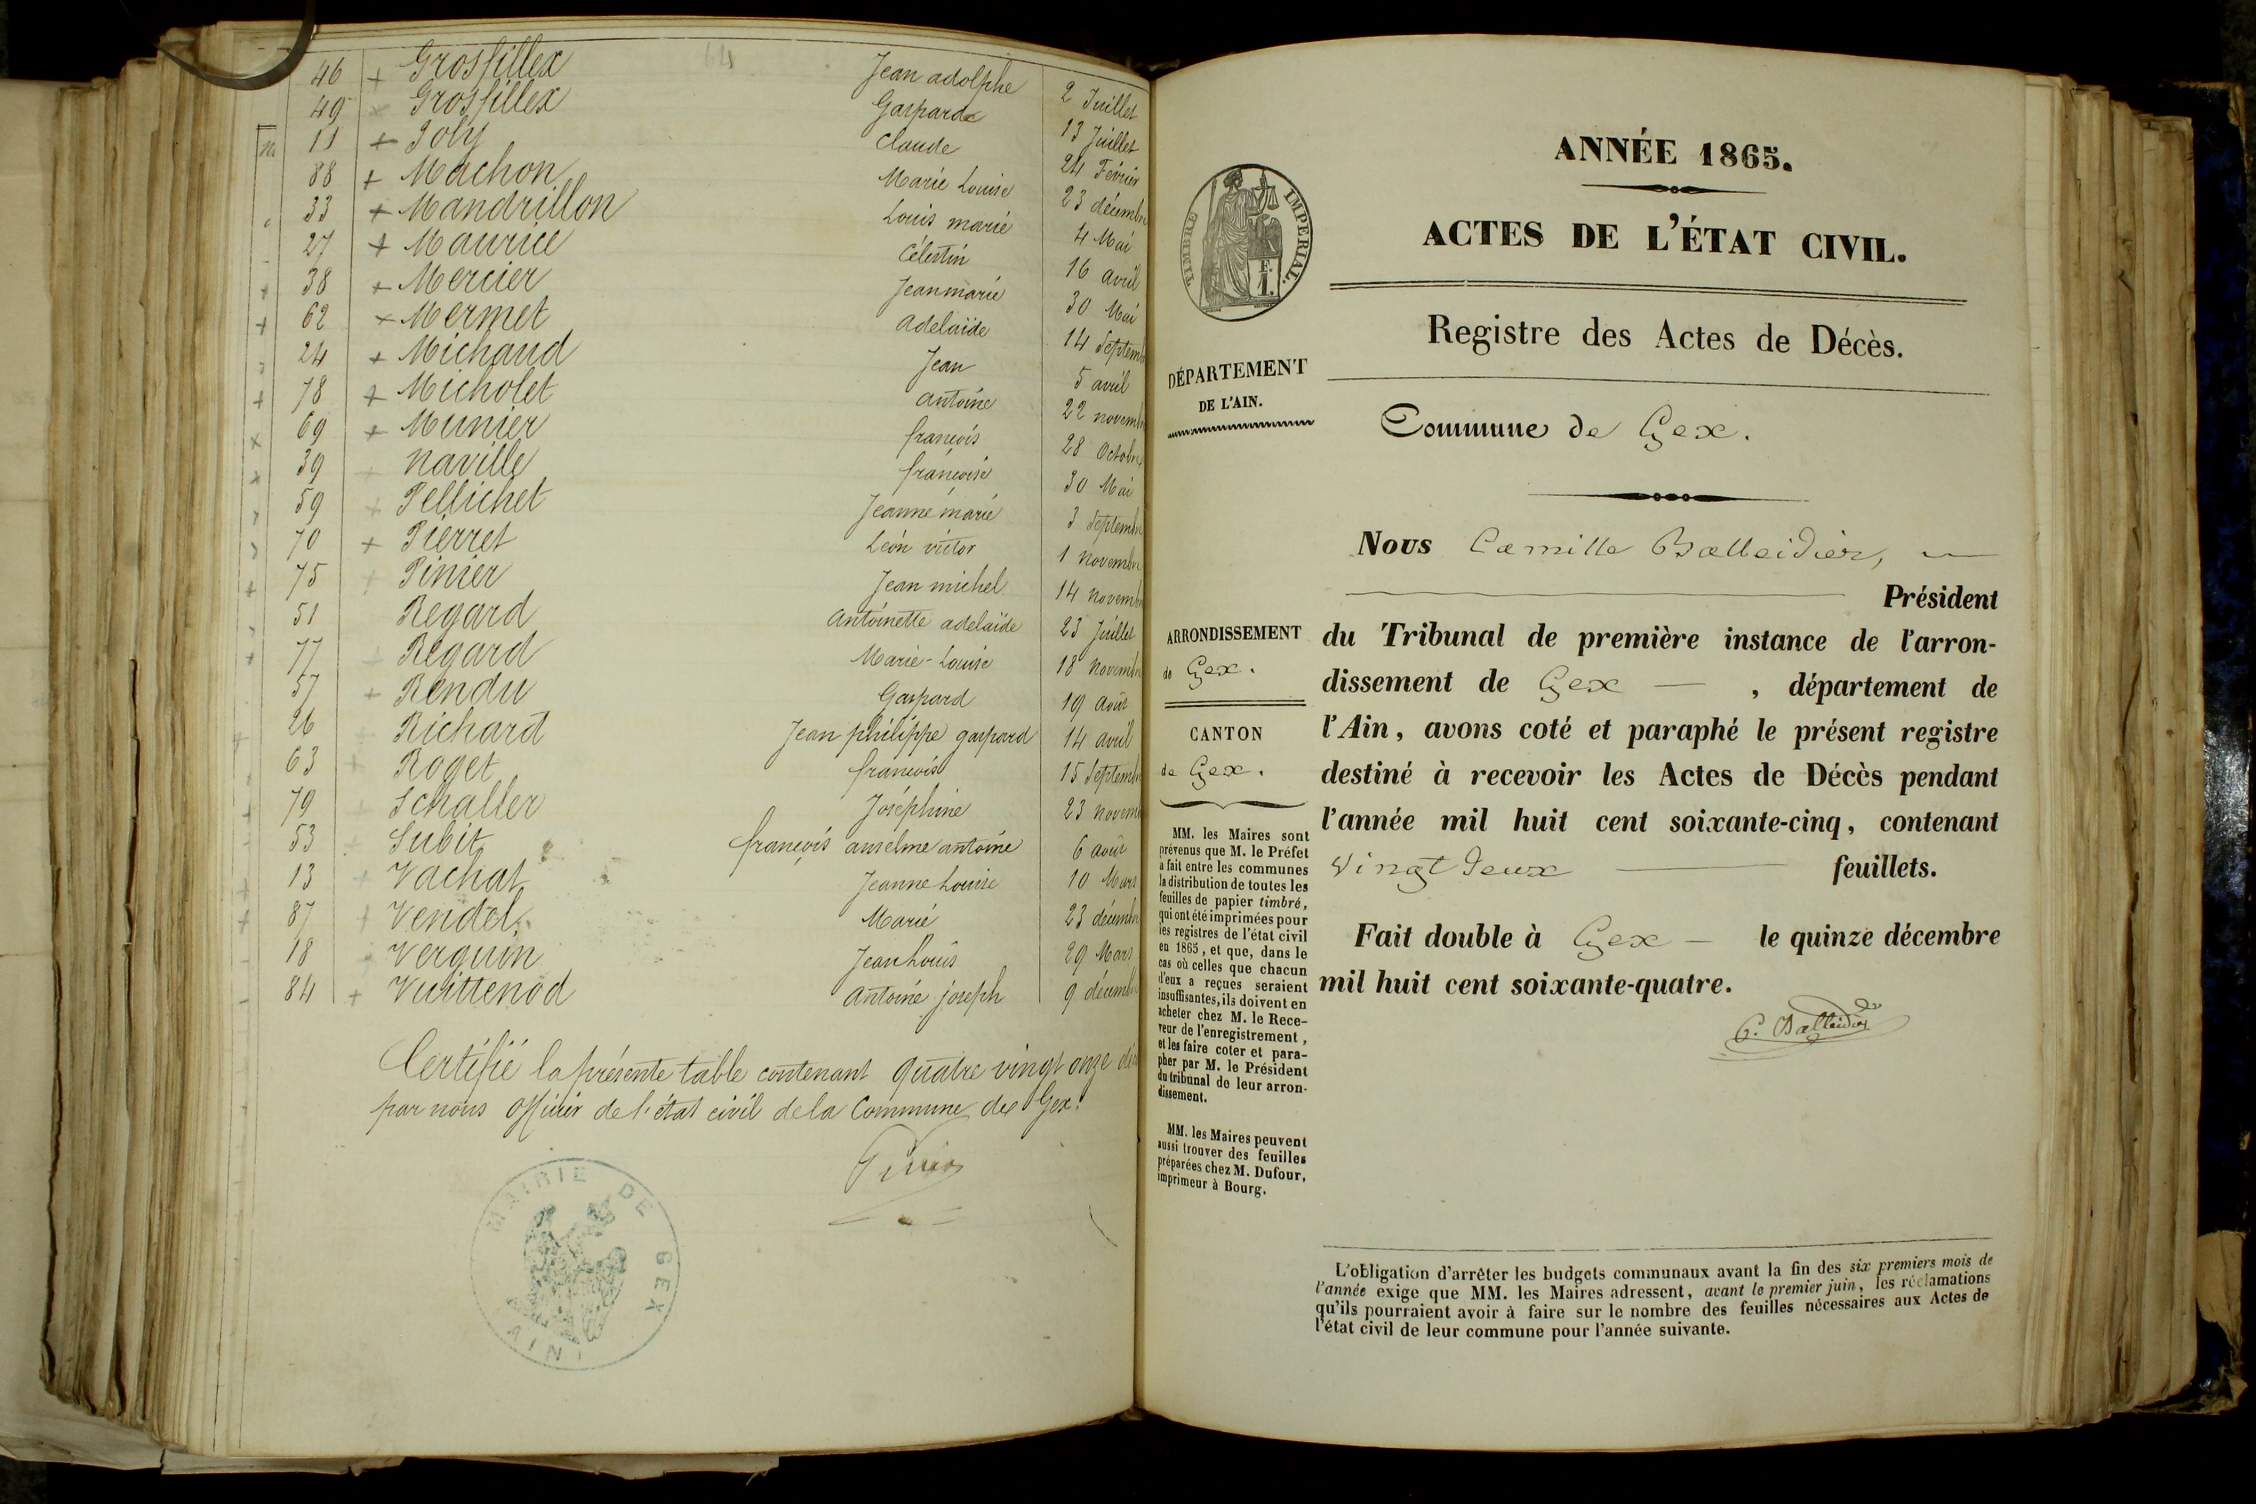 64
46 + Grosfillex Jean adolphe 2 Juillet
49 Grosfillex Gasparde 13 Juillet
11 + Joly Claude 24 Février
88 + Machon Marie Louise 23 décembre
33 + Mandrillon Louis marie 4 Mai
27 + Maurice Célestin 16 avril
38 + Mercier Jean marie 30 Mai
62 + Mermet adelaïde 14 Septemb
24 + Michaud Jean 5 avril
78 + Micholet antoine 22 novemb
69 + Munier françois 28 Octobre
39 + naville françoise 30 Mai
59 + Pellichet Jeanne marie 3 Septembre
70 + Pierret Léon victor 1 novembre
75 + Pinier Jean michel 14 novemb
51 Regard antoinette adelaïde 23 Juillet
77 Regard Marie-Louise 18 novemb
57 + Rendu Gaspard 19 août
26 Richard Jean philippe gaspard 14 avril
63 + Roget françois 15 Septemb
79 + Schaller Joséphine 23 novemb
53 Subit françois anselme antoine 6 août
13 + Vachat Jeanne Louise 10 Mars
87 + Vendel Marie 23 décemb
18 Verguin Jean Louis 29 Mars
84 + Vuittenod Antoine joseph 9 décemb
Certifié la présente table contenant quatre vingt onze
par nous Officier de l'état civil de la Commune de Gex.
MAIRIE DE GEX
AIN
ANNÉE 1865.
ACTES DE L'ÉTAT CIVIL.
TIMBRE IMPERIAL.
F.
1.
Registre des Actes de Décès.
DÉPARTEMENT
DE L'AIN.
Commune de Gex.
Nous Camille Balleidier,
Président
du Tribunal de première instance de l'arron-
dissement de Gex , département de
l'Ain, avons coté et paraphé le présent registre
destiné à recevoir les Actes de Décès pendant
l'année mil huit cent soixante-cinq, contenant
vingt deux feuillets.
Fait double à Gex le quinze décembre
mil huit cent soixante-quatre.
C. Balleidier
ARRONDISSEMENT
de Gex.
CANTON
de Gex.
MM. les Maires sont
prévenus que M. le Préfet
a fait entre les communes
la distribution de toutes les
feuilles de papier timbré,
qui ont été imprimées pour
les registres de l'état civil
en 1865, et que, dans le
cas où celles que chacun
d'eux a reçues seraient
insuffisantes, ils doivent en
acheter chez M. le Rece-
veur de l'enregistrement,
et les faire coter et para-
pher par M. le Président
du tribunal de leur arron-
dissement.
MM. les Maires peuvent
aussi trouver des feuilles
préparées chez M. Dufour,
imprimeur à Bourg.
L'obligation d'arrêter les budgets communaux avant la fin des six premiers mois de
l'année exige que MM. les Maires adressent, avant le premier juin, les réclamations
qu'ils pourraient avoir à faire sur le nombre des feuilles nécessaires aux Actes de
l'état civil de leur commune pour l'année suivante.